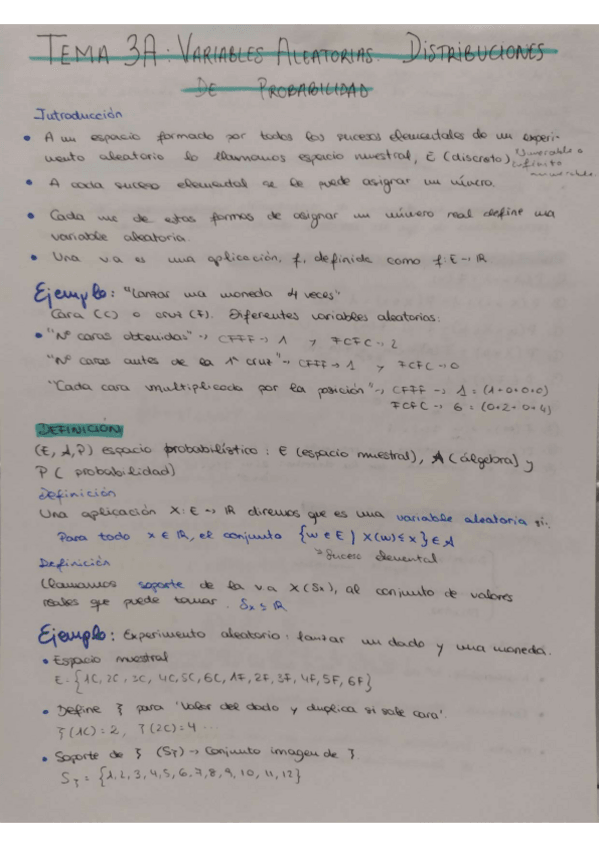 TEMA 3A: VARIABLES ALEATORIAS. DISTRIBUCIONES
DE PROBABILIDAD
Introducción
• A un espacio formado por todos los sucesos elementales de un experi-
mento aleatorio lo llamamos espacio muestral, E (discreto) numerable o infinito
• A cada suceso elemental se le puede asignar un número.
• Cada una de estas formas de asignar un número real define una
variable aleatoria.
• Una v.a es una aplicación, f, definida como f: E → ℝ
Ejemplo: "Lanzar una moneda 4 veces"
Cara (C) o cruz (F). Diferentes variables aleatorias:
• "Nº caras obtenidas" → CFFF → 1 y FCFC → 2
"Nº caras antes de la 1ª cruz" → CFFF → 1 y FCFC → 0
"Cada cara multiplicada por la posición" → CFFF → 1 = (1+0+0+0)
FCFC → 6 = (0+2+0+4)
DEFINICION
(E, A, P) espacio probabilístico: E (espacio muestral), A (álgebra) y
P (probabilidad)
Definición
Una aplicación X: E → ℝ diremos que es una variable aleatoria si:
Para todo x ∈ ℝ, el conjunto {w ∈ E | X(w) ≤ x} ∈ A
Suceso elemental
Definición
Llamamos soporte de la v.a X (Sx), al conjunto de valores
reales que puede tomar. Sx ⊆ ℝ
Ejemplo: Experimento aleatorio: lanzar un dado y una moneda.
• Espacio muestral
E = {1C, 2C, 3C, 4C, 5C, 6C, 1F, 2F, 3F, 4F, 5F, 6F}
• Define ξ para 'Valor del dado y duplica si sale cara'.
ξ(1C) = 2, ξ(2C) = 4 ...
• Soporte de ξ (Sξ) → Conjunto imagen de ξ
Sξ = {1, 2, 3, 4, 5, 6, 7, 8, 9, 10, 11, 12}